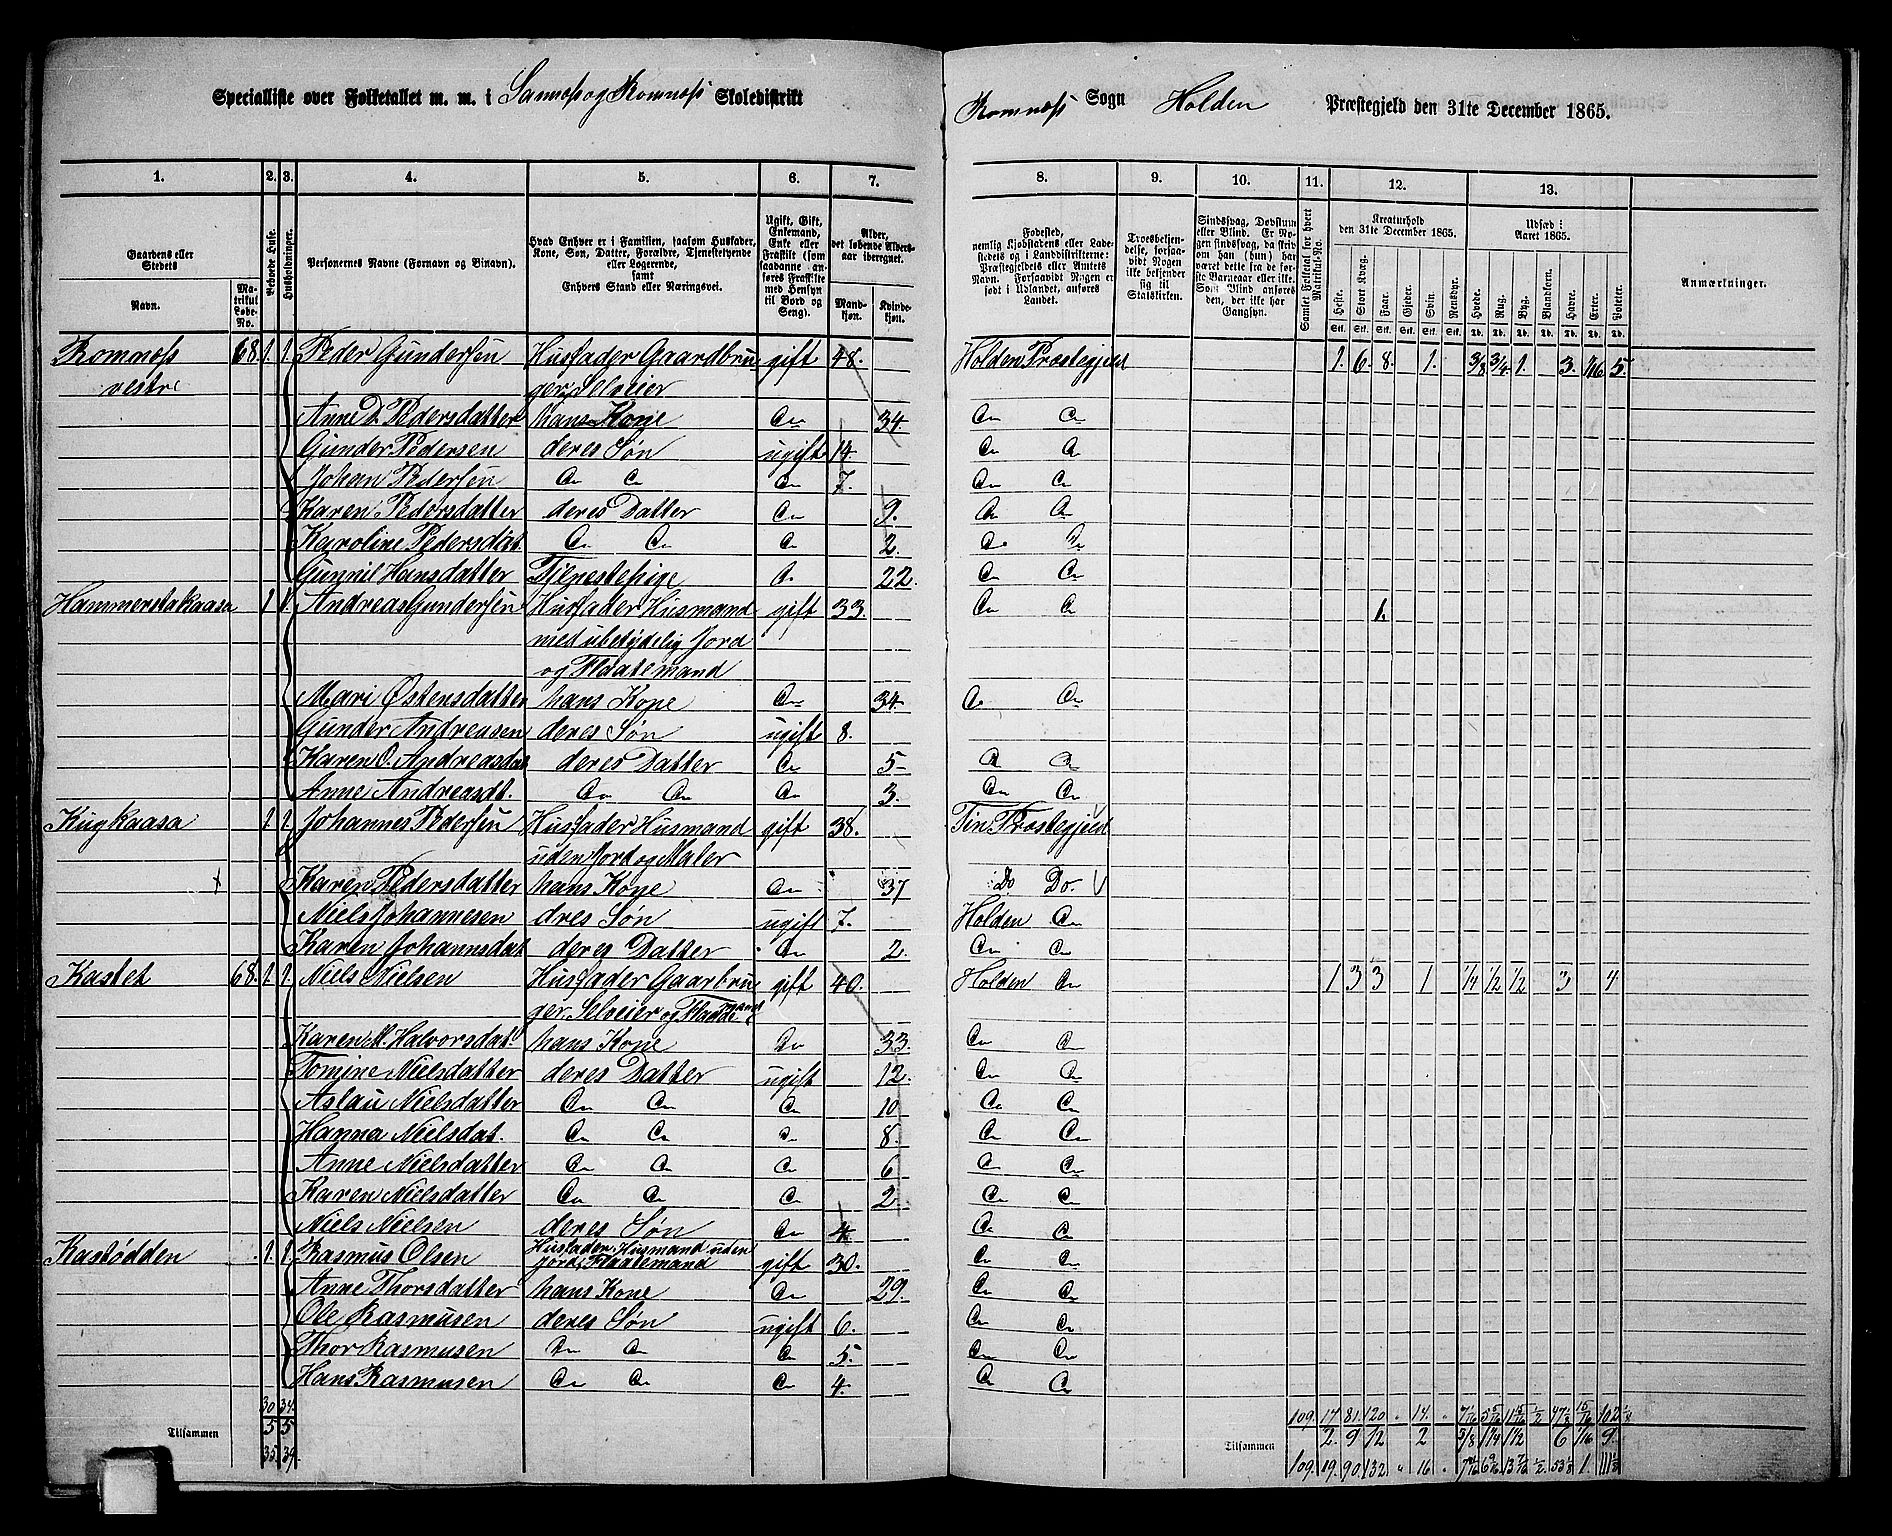 Specialliste over Folketallet m. m. i Sannøs og Romnøs Skoledistrikt
Romnøs Sogn Holden Præstegjeld den 31te December 1865.
1. 2. 3. 4. 5. 6. 7. 8. 9. 10. 11. 12. 13.
Gaardens eller Stedets Navn. Matrikul Løbe-No. Beboede Huse. Husholdninger. Personernes Navne (Fornavn og Binavn). Hvad Enhver er i Familien, saasom Husfader, Kone, Søn, Datter, Forældre, Tjenestetyende eller Logerende, samt Enhvers Stand eller Næringsvei. Ugift, Gift, Enkemand, Enke eller Fraskilt (som saadanne anføres Fraskilte med Hensyn til Bord og Seng). Alder, det løbende Aldersaar iberegnet. Mandkjøn. Kvindekjøn.
Fødested, nemlig Kjøbstadens eller Ladestedets eller i Landdistrikterne: Præstegjeldets eller Amtets Navn. Forsaavidt Nogen er født i Udlandet, anføres Landet. Troesbekjendelse, forsaavidt Nogen ikke bekjender sig til Statskirken. Sindssvag, Døvstum eller Blind. Er Nogen sindssvag, da skriv om han (hun) har været dette fra de første Barneaar eller ikke. Som Blind anføres den, der ikke har Gangsyn. Samlet Folketal for hvert Matrikul-No. Kreaturhold den 31te December 1865. Heste. Stort Kvæg. Faar. Gjeder. Svin. Rensdyr. Udsæd i Aaret 1865. Hvede. Rug. Byg. Blandkorn. Havre. Erter. Poteter. Anmærkninger.
Romnøs 68. 1. 1. Peder Gundersen Husfader Gaardbru gift 48. Holden Præstegjeld 1. 6. 8. 1. 3/8 3/4. 1. 3. 1/16 5.
vestre ger, Selveier
Anne D. Pedersdatter hans Kone Do 34. Do Do
Gunder Pedersen deres Søn ugift 14 Do Do
Johan Pedersen Do Do Do 7. Do Do
Karen Pedersdatter deres Datter Do 9. Do Do
Karoline Pedersdat. Do Do Do 2. Do Do
Gunnil Hansdatter Tjenestepige Do 22. Do Do
Hammerstakaasa 1 1. Andreas Gundersen Husfader Husmand gift 33. Do Do 1.
med ubetydelig Jord
og Flaatemand
Mari Østensdatter hans Kone Do 34 Do Do
Gunder Andreasen deres Søn ugift 8.
Karen O. Andreasdat deres Datter Do 5 Do Do
Anne Andreasdt. Do Do Do 3. Do Do
Kugkaasa 1. 1. Johannes Pedersen Husfader Husmand gift 38. Tin Præstegjeld V
uden Jord og Maler
x Karen Pedersdatter hans Kone Do 37 Do Do. V
Niels Johannesen dres Søn ugift 7. Holden Do
Karen Johannsdat deres Datter Do 2. Do Do
Kastet 68. 1. 1. Niels Nielsen Husfader Gaarbru gift 40. Holden Do 1 3 3 1 1/4 1/2 1/2 3 4
ger, Selveier og Flaademand
Karen M. Halvorsdat. hans Kone Do 33. Do Do
Tomine Nielsdatter deres Datter ugift 12. Do Do
Aslau Nielsdatter Do Do Do 10 Do Do
Hanna Nielsdat. Do Do Do 8. Do Do
Anne Nielsdatter Do Do Do 6 Do Do
Karen Nielsdatter Do Do Do 2 Do Do
Niels Nielsen deres Søn Do 4 Do Do
Kastødden 1. 1. Rasmus Olsen Husfader, Husmand uden Jord, Flaatemand gift 30. Do Do
Anne Thorsdatter hans Kone Do 29. Do Do
Ole Rasmusen deres Søn ugift 6. Do Do
Thor Rasmusen Do Do Do 5. Do Do
Hans Rasmusen Do Do Do 4. Do Do
30 34. 109. 17. 81. 120 " 14. "
Tilsammen 5 5 Tilsammen 2. 9 12 2 5/8 1 1/4 1 1/2 6 1/16 9.
35. 39. 109. 19. 90. 132 " 16 "